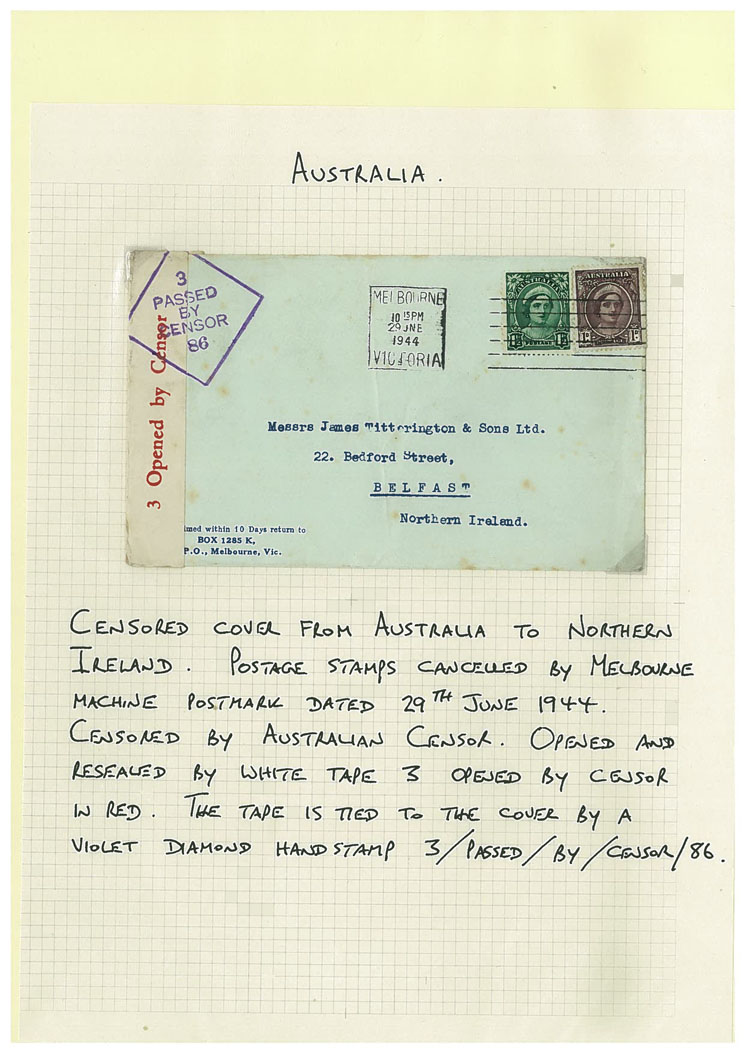 AUSTRALIA.
3
PASSED
BY
CENSOR
86
3 Opened by Censor
MELBOURNE
10 15PM
29 JNE
1944
VICTORIA
AUSTRALIA
POSTAGE
AUSTRALIA
1D 1D
Messrs James Titterington & Sons Ltd.
22. Bedford Street,
BELFAST
Northern Ireland.
within 10 Days return to
BOX 1285 K,
P.O., Melbourne, Vic.
CENSORED COVER FROM AUSTRALIA TO NORTHERN
IRELAND. POSTAGE STAMPS CANCELLED BY MELBOURNE
MACHINE POSTMARK DATED 29TH JUNE 1944.
CENSORED BY AUSTRALIAN CENSOR. OPENED AND
RESEALED BY WHITE TAPE 3 OPENED BY CENSOR
IN RED. THE TAPE IS TIED TO THE COVER BY A
VIOLET DIAMOND HANDSTAMP 3/PASSED/BY/CENSOR/86.